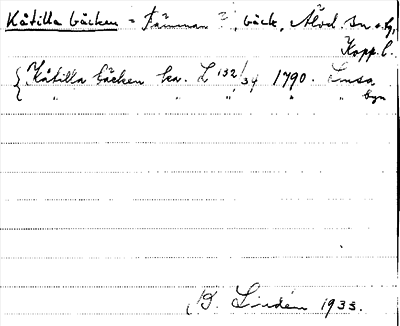 Kåtilla bäcken = Tännan ?, bäck, Älvd. sn o. hg,
Kopp. l.
{ Kåtilla bäcken ka. L 132/34 1790. Linsa
" " " " " " byn
B. Lindén 1933.